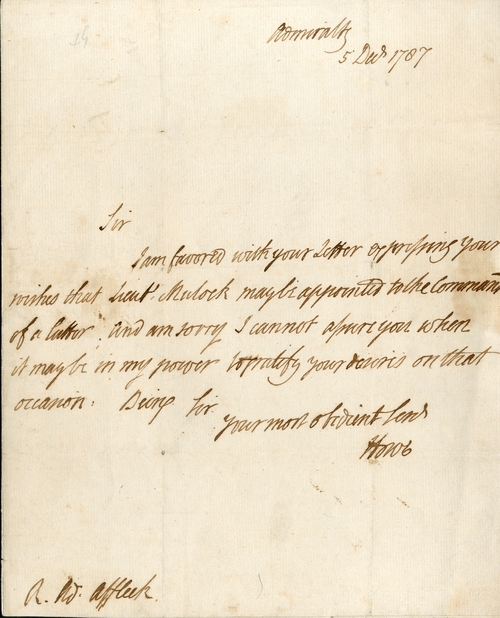 Admiralty
5 Decr. 1787
Sir
I am favored with your Letter expressing your
wishes that Lieut. Mulock may be appointed to the Command
of a Cutter. and am sorry I cannot assure you when
it may be in my power to gratify your desires on that
occasion. Being Sir
your most obedient Servt
Howe
R. Ad. Affleck.